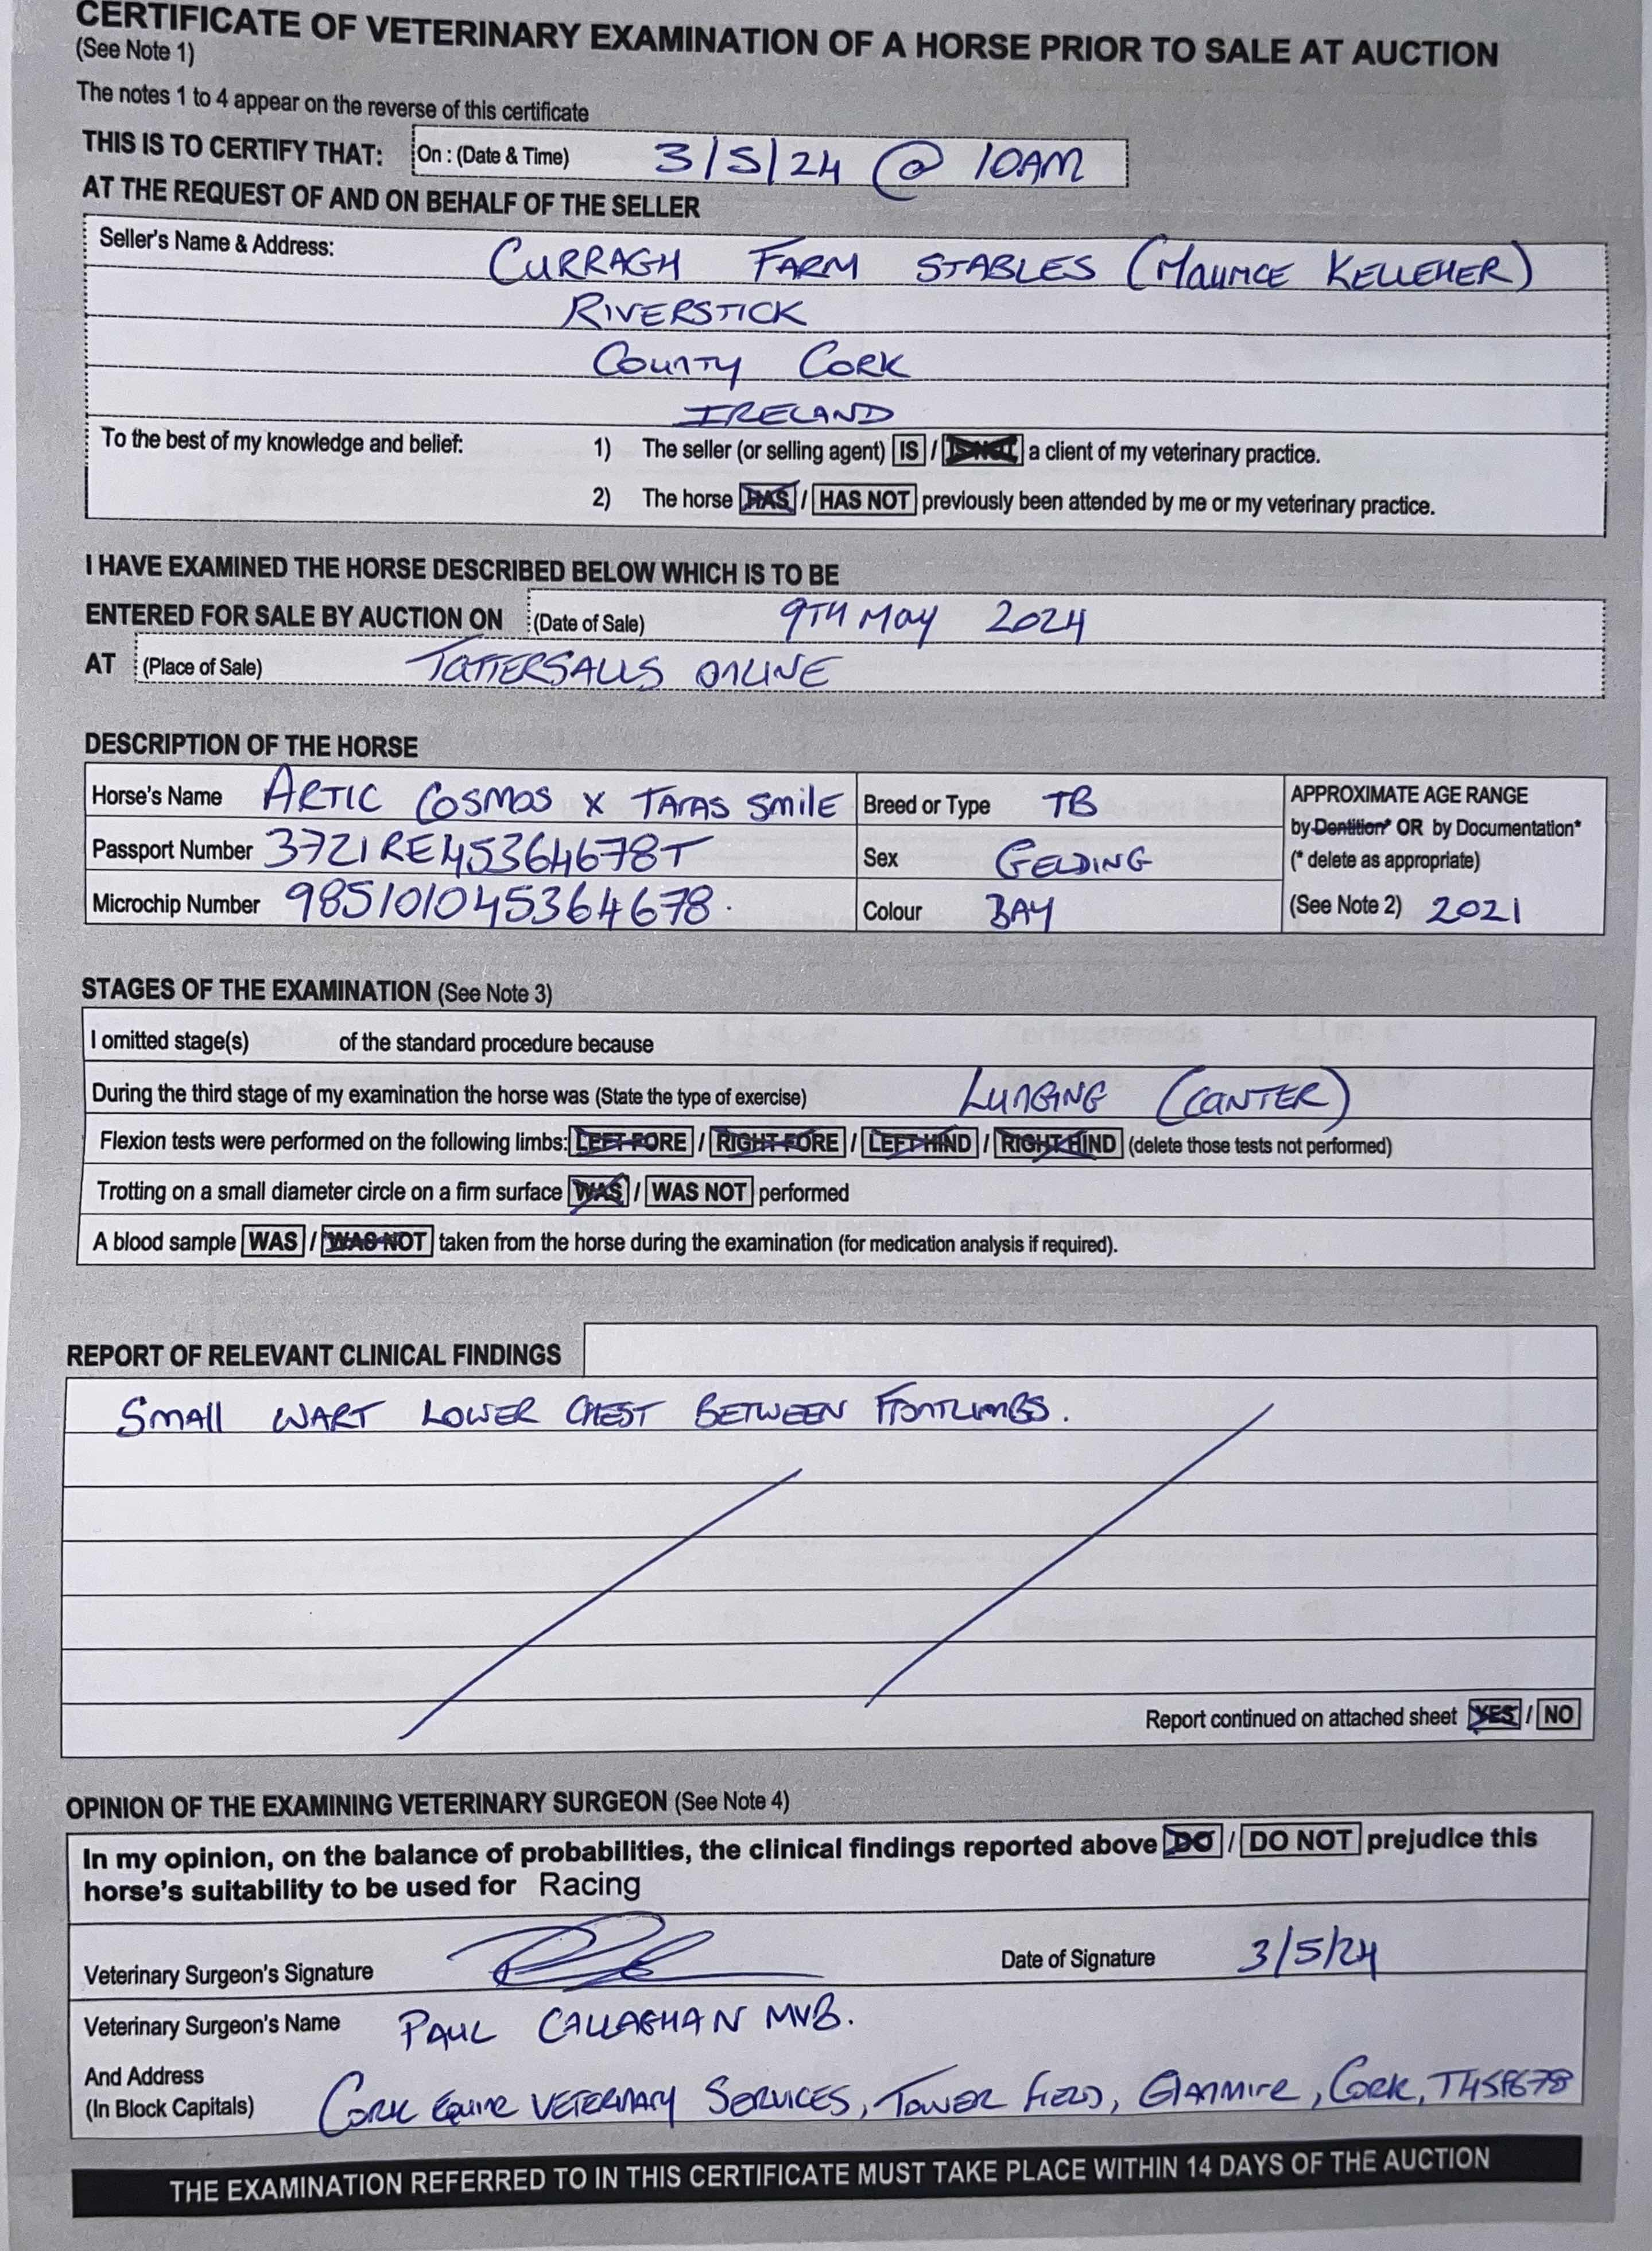 CERTIFICATE OF VETERINARY EXAMINATION OF A HORSE PRIOR TO SALE AT AUCTION
(See Note 1)
The notes 1 to 4 appear on the reverse of this certificate
THIS IS TO CERTIFY THAT: On : (Date & Time) 3/5/24 @ 10AM
AT THE REQUEST OF AND ON BEHALF OF THE SELLER
Seller's Name & Address: CURRAGH FARM STABLES (MAURICE KELLEHER)
RIVERSTICK
COUNTY CORK
IRELAND
To the best of my knowledge and belief: 1) The seller (or selling agent) IS / IS NOT a client of my veterinary practice.
2) The horse HAS / HAS NOT previously been attended by me or my veterinary practice.
I HAVE EXAMINED THE HORSE DESCRIBED BELOW WHICH IS TO BE
ENTERED FOR SALE BY AUCTION ON (Date of Sale) 9TH MAY 2024
AT (Place of Sale) TATTERSALLS ONLINE
DESCRIPTION OF THE HORSE
Horse's Name ARTIC COSMOS X TARAS SMILE Breed or Type TB APPROXIMATE AGE RANGE
by Dentition* OR by Documentation*
Passport Number 3721RE45364678T Sex GELDING (* delete as appropriate)
Microchip Number 985101045364678. Colour BAY (See Note 2) 2021
STAGES OF THE EXAMINATION (See Note 3)
I omitted stage(s) of the standard procedure because
During the third stage of my examination the horse was (State the type of exercise) LUNGING (CANTER)
Flexion tests were performed on the following limbs: LEFT FORE / RIGHT FORE / LEFT HIND / RIGHT HIND (delete those tests not performed)
Trotting on a small diameter circle on a firm surface WAS / WAS NOT performed
A blood sample WAS / WAS NOT taken from the horse during the examination (for medication analysis if required).
REPORT OF RELEVANT CLINICAL FINDINGS
SMALL WART LOWER CHEST BETWEEN FRONTLIMBS.
Report continued on attached sheet YES / NO
OPINION OF THE EXAMINING VETERINARY SURGEON (See Note 4)
In my opinion, on the balance of probabilities, the clinical findings reported above DO / DO NOT prejudice this
horse's suitability to be used for Racing
Veterinary Surgeon's Signature Date of Signature 3/5/24
Veterinary Surgeon's Name PAUL CALLAGHAN MVB.
And Address
(In Block Capitals) CORK EQUINE VETERINARY SERVICES, TOWER FIELD, GLANMIRE, CORK,
THE EXAMINATION REFERRED TO IN THIS CERTIFICATE MUST TAKE PLACE WITHIN 14 DAYS OF THE AUCTION